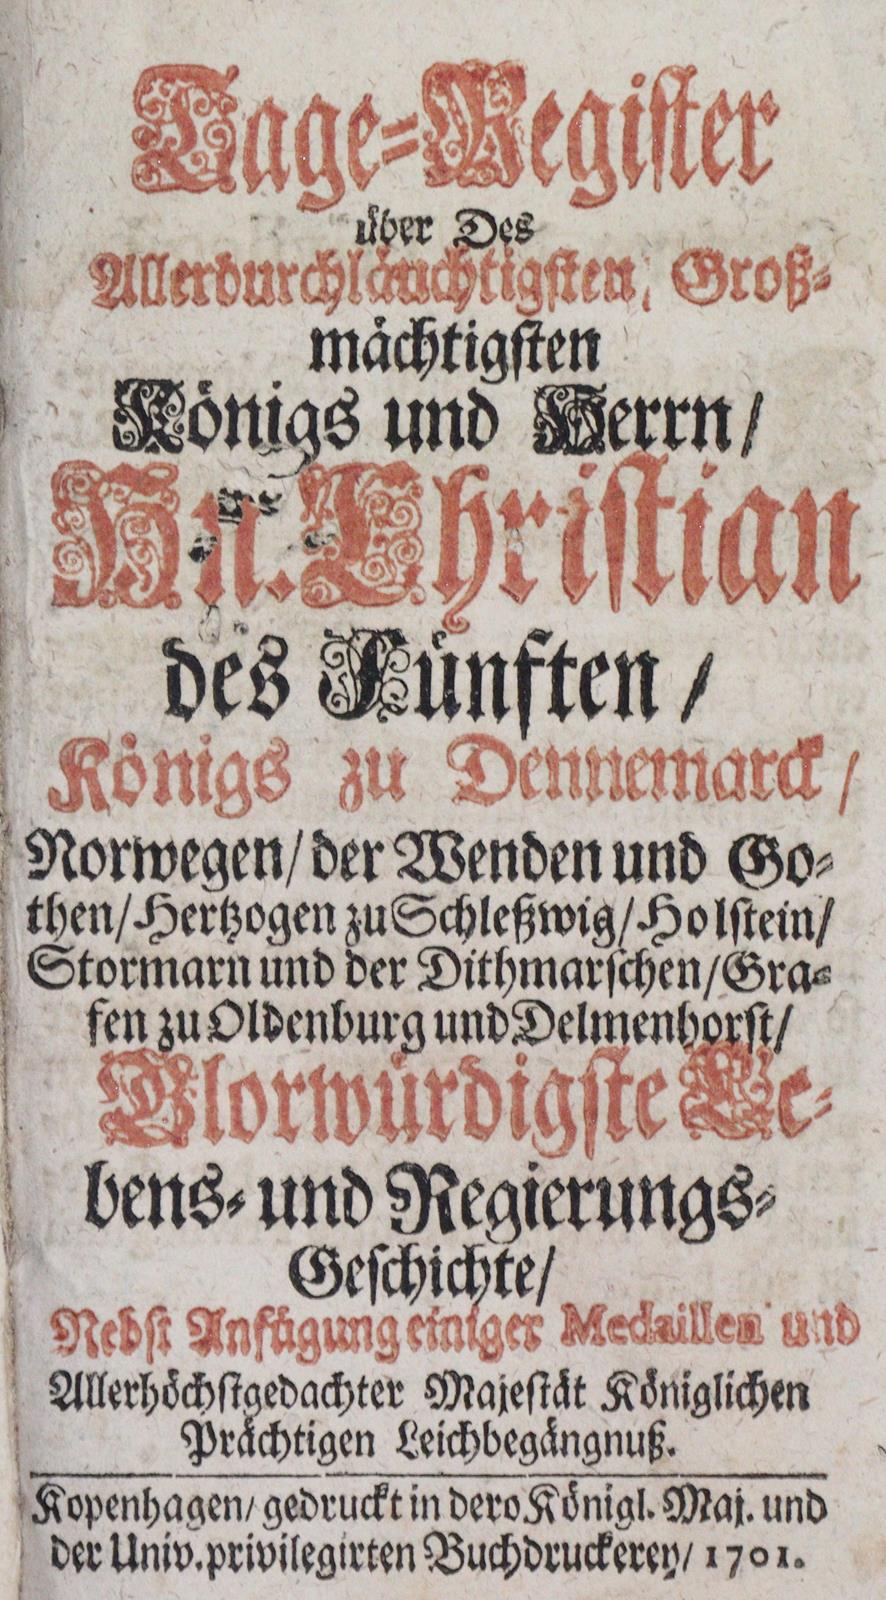 Tage-Register
über Des
Allerdurchläuchtigsten, Groß-
mächtigsten
Königs und Herrn/
Hn. Christian
des Fünften/
Königs zu Dennemarck/
Norwegen/ der Wenden und Go-
then/ Hertzogen zu Schleßwig/ Holstein/
Stormarn und der Dithmarschen/ Gra-
fen zu Oldenburg und Delmenhorst/
Glorwürdigste Le-
bens- und Regierungs-
Geschichte/
Nebst Anfügung einiger Medaillen und
Allerhöchstgedachter Majestät Königlichen
Prächtigen Leichbegängnuß.
Kopenhagen/ gedruckt in dero Königl. Maj. und
der Univ. privilegirten Buchdruckerey/ 1701.